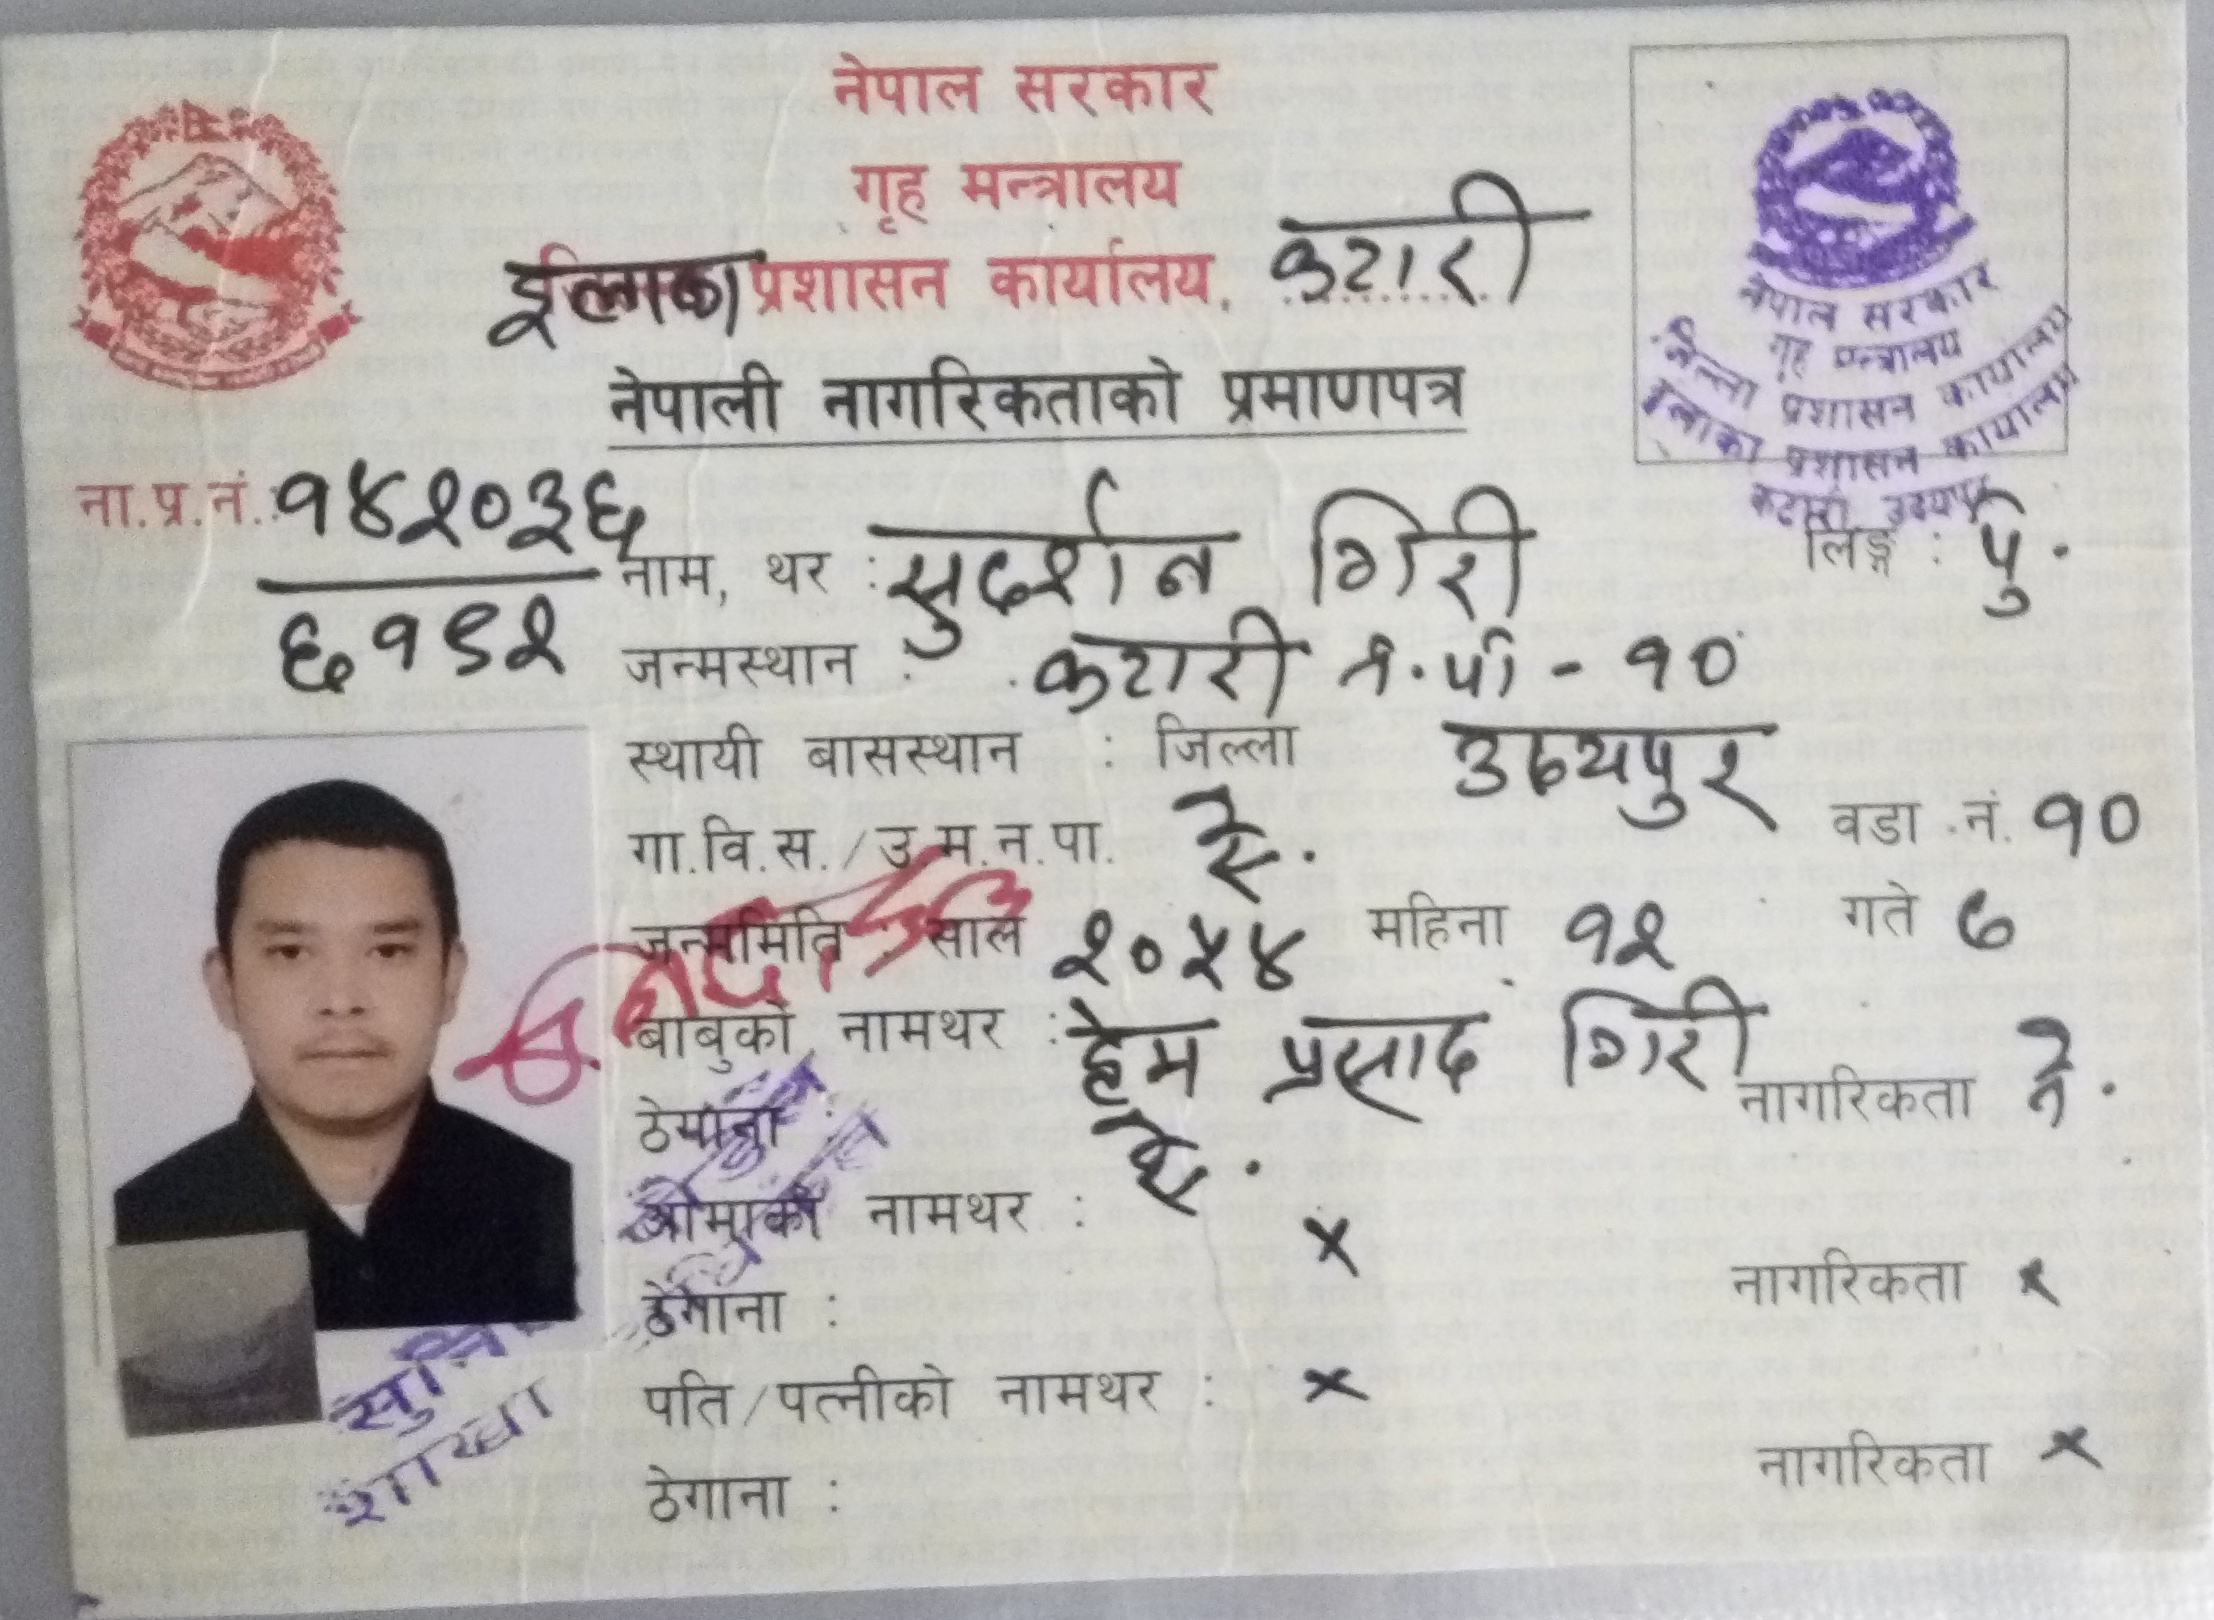 नेपाल सरकार
गृह मन्त्रालय
ईलाका प्रशासन कार्यालय, कटारी
नेपाली नागरिकताको प्रमाणपत्र
नेपाल सरकार
गृह मन्त्रालय
जिल्ला प्रशासन कार्यालय
इलाका प्रशासन कार्यालय
कटारी उदयपुर
ना.प्र.नं. १४२०३६
६१९२
नाम, थर : सुदर्शन गिरी लिङ्ग : पु.
जन्मस्थान : कटारी न.पा - १०
स्थायी बासस्थान : जिल्ला उदयपुर
गा.वि.स./उ.म.न.पा. ऐ. वडा नं. १०
जन्ममिति : साल २०५४ महिना १२ गते ७
बाबुको नामथर : हेम प्रसाद गिरी
ठेगाना : ऐ. नागरिकता ने.
आमाको नामथर : ×
ठेगाना : नागरिकता ×
पति/पत्नीको नामथर : ×
ठेगाना : नागरिकता ×
शाखा